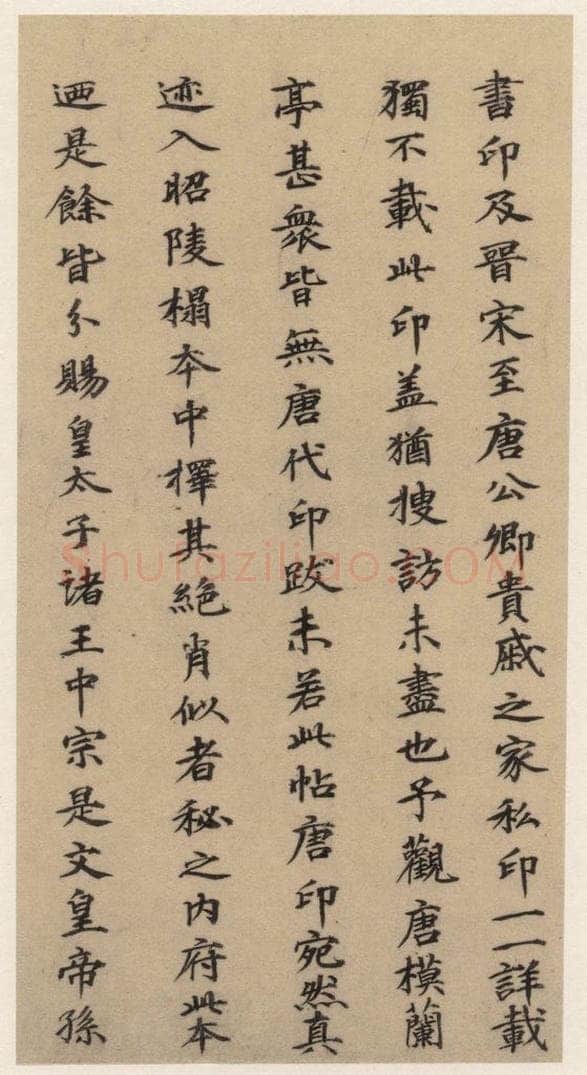 書印及晉宋至唐公卿貴戚之家私印一一詳載
獨不載此印盖猶搜訪未盡也予觀唐模蘭
亭甚衆皆無唐代印跋未若此帖唐印宛然真
迹入昭陵榻本中擇其絶肖似者秘之内府此本
迺是餘皆分賜皇太子諸王中宗是文皇帝孫
Shufaziliao.COM